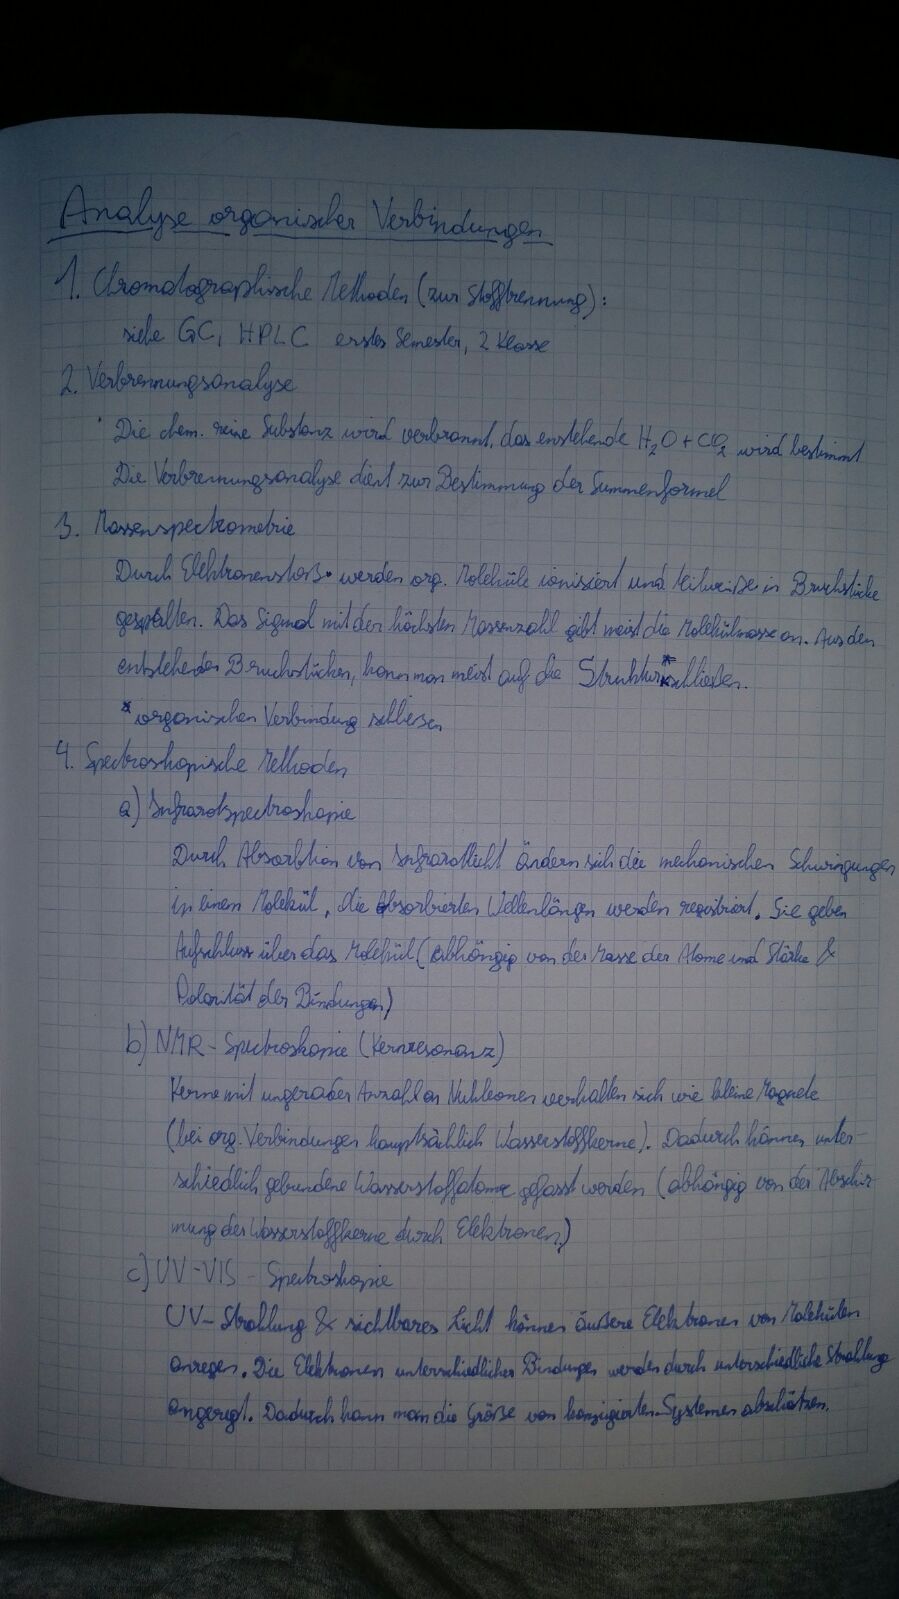 Analyse organischer Verbindungen
1. Chromatographische Methoden (zur Stofftrennung):
siehe GC, HPLC erstes Semester, 2 Klasse
2. Verbrennungsanalyse
Die chem. reine Substanz wird verbrannt, das enstehende H₂O + CO₂ wird bestimmt
Die Verbrennungsanalyse dient zur Bestimmung der Summenformel
3. Massenspectrometrie
Durch Elektronenstoß werden org. Moleküle ionisiert und teilweiße in Bruchstücke
gespalten. Das Signal mit der höchsten Massenzahl gibt meist die Molekülmasse an. Aus den
entstehenden Bruchstücken, kann man meist auf die Struktur* schließen.
* organischen Verbindung schliesen
4. Spectroskopische Methoden
a) Infrarotspectroskopie
Durch Absorbtion von Infrarotlicht ändern sich die mechanischen Schwingungen
in einem Molekül, die absorbierten Wellenlängen werden registriert. Sie geben
Aufschluss über das Molekül (abhängig von der Masse der Atome und Stärke &
Polarität der Bindungen)
b) NMR-Spectroskopie (Kernresonanz)
Kerne mit ungerader Anzahl an Nukleonen verhalten sich wie kleine Magnete
(bei org. Verbindungen hauptsächlich Wasserstoffkerne). Dadurch können unter-
schiedlich gebundene Wasserstoffatome gefasst werden (abhängig von der Abschir-
mung der Wasserstoffkerne durch Elektronen)
c) UV-VIS - Spectroskopie
UV-Strahlung & sichtbares Licht können äußere Elektronen von Molekülen
anregen. Die Elektronen unterschiedlicher Bindungen werden durch unterschiedliche Strahlung
angeregt. Dadurch kann man die Größe von konjugierten Systemen abschätzen.